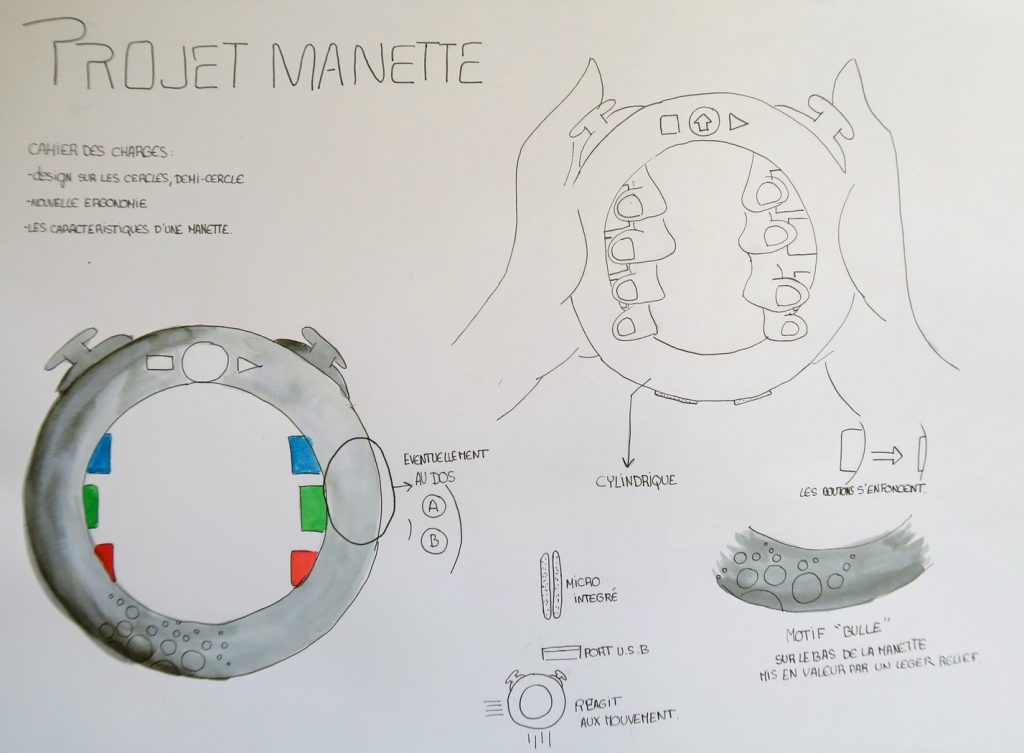 PROJET MANETTE
CAHIER DES CHARGES:
-design SUR LES CERCLES, DEMI-CERCLE
-NOUVELLE ERGONOMIE
-LES CARACTERISTIQUES D'UNE MANETTE.
EVENTUELLEMENT
AU DOS
A
B
CYLINDRIQUE
LES BOUTONS S'ENFONCENT.
MICRO
INTEGRÉ
PORT U.S.B
RÉAGIT
AUX MOUVEMENT.
MOTIF "BULLE"
SUR LE BAS DE LA MANETTE
MIS EN VALEUR PAR UN LEGER RELIEF.